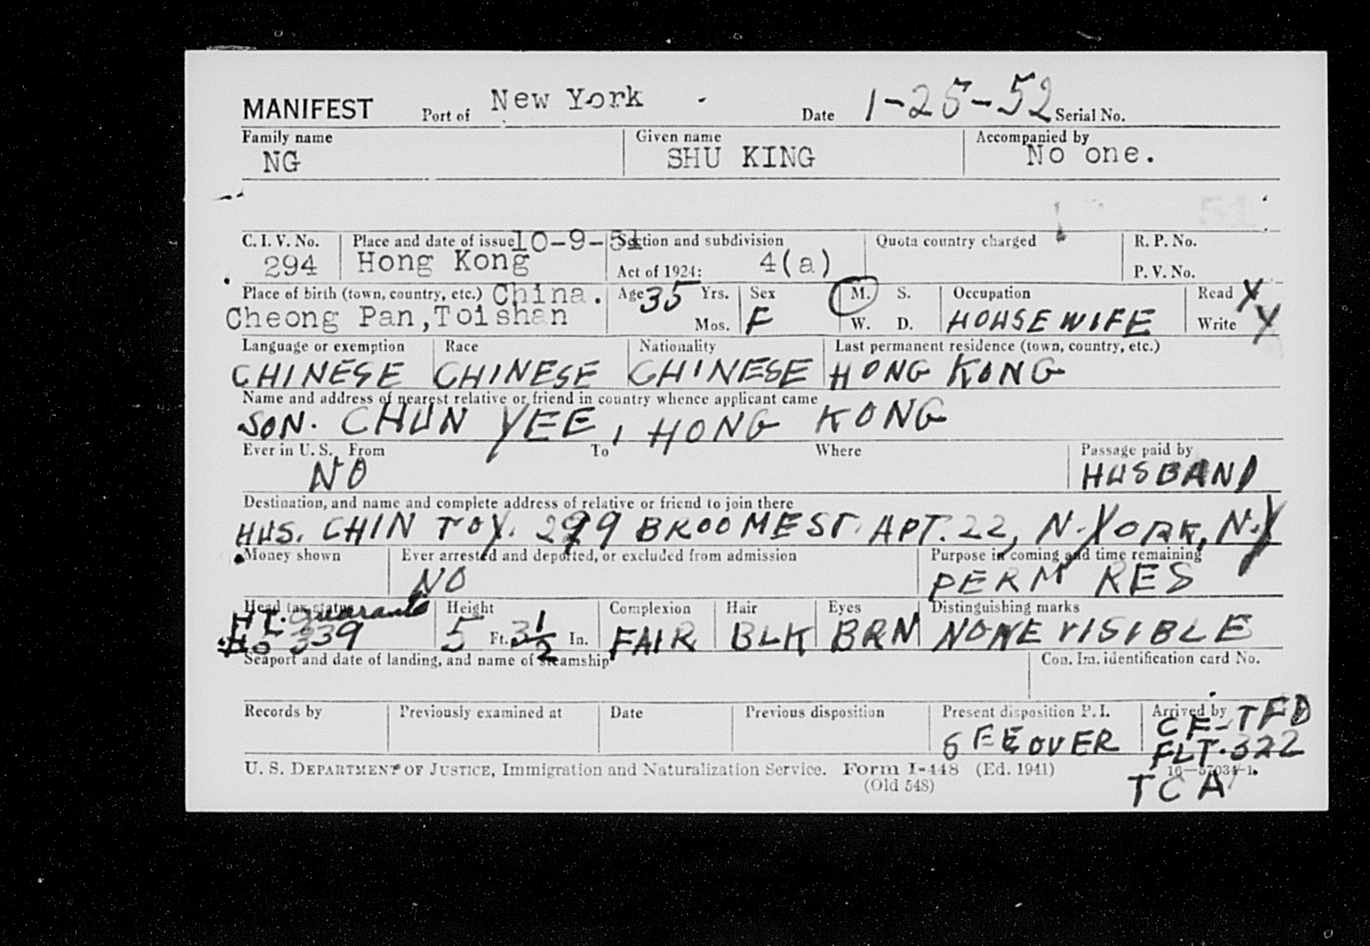 MANIFEST Port of New York Date 1-25-52 Serial No.
Family name Given name Accompanied by
NG SHU KING No one.
C. I. V. No. Place and date of issue 10-9-51 Section and subdivision Quota country charged R. P. No.
294 Hong Kong Act of 1924: 4(a) P. V. No.
Place of birth (town, country, etc.) China. Age 35 Yrs. Sex M. S. Occupation Read X
Cheong Pan, Toishan Mos. F W. D. HOUSEWIFE Write Y
Language or exemption Race Nationality Last permanent residence (town, country, etc.)
CHINESE CHINESE CHINESE HONG KONG
Name and address of nearest relative or friend in country whence applicant came
SON. CHUN YEE, HONG KONG
Ever in U. S. From To Where Passage paid by
NO HUSBAND
Destination, and name and complete address of relative or friend to join there
HUS. CHIN TOY. 299 BROOME ST. APT. 22, N. YORK, N.Y
Money shown Ever arrested and deported, or excluded from admission Purpose in coming and time remaining
NO PERM RES
Head tax status Height Complexion Hair Eyes Distinguishing marks
339 5 Ft. 3 1/2 In. FAIR BLK BRN NONE VISIBLE
Seaport and date of landing, and name of steamship Con. Im. identification card No.
Records by Previously examined at Date Previous disposition Present disposition P. I. Arrived by
SEE OVER CF-TFD
FLT. 322
U. S. DEPARTMENT OF JUSTICE, Immigration and Naturalization Service. Form I-448 (Ed. 1941) 16—57034-1
(Old 548) TCA